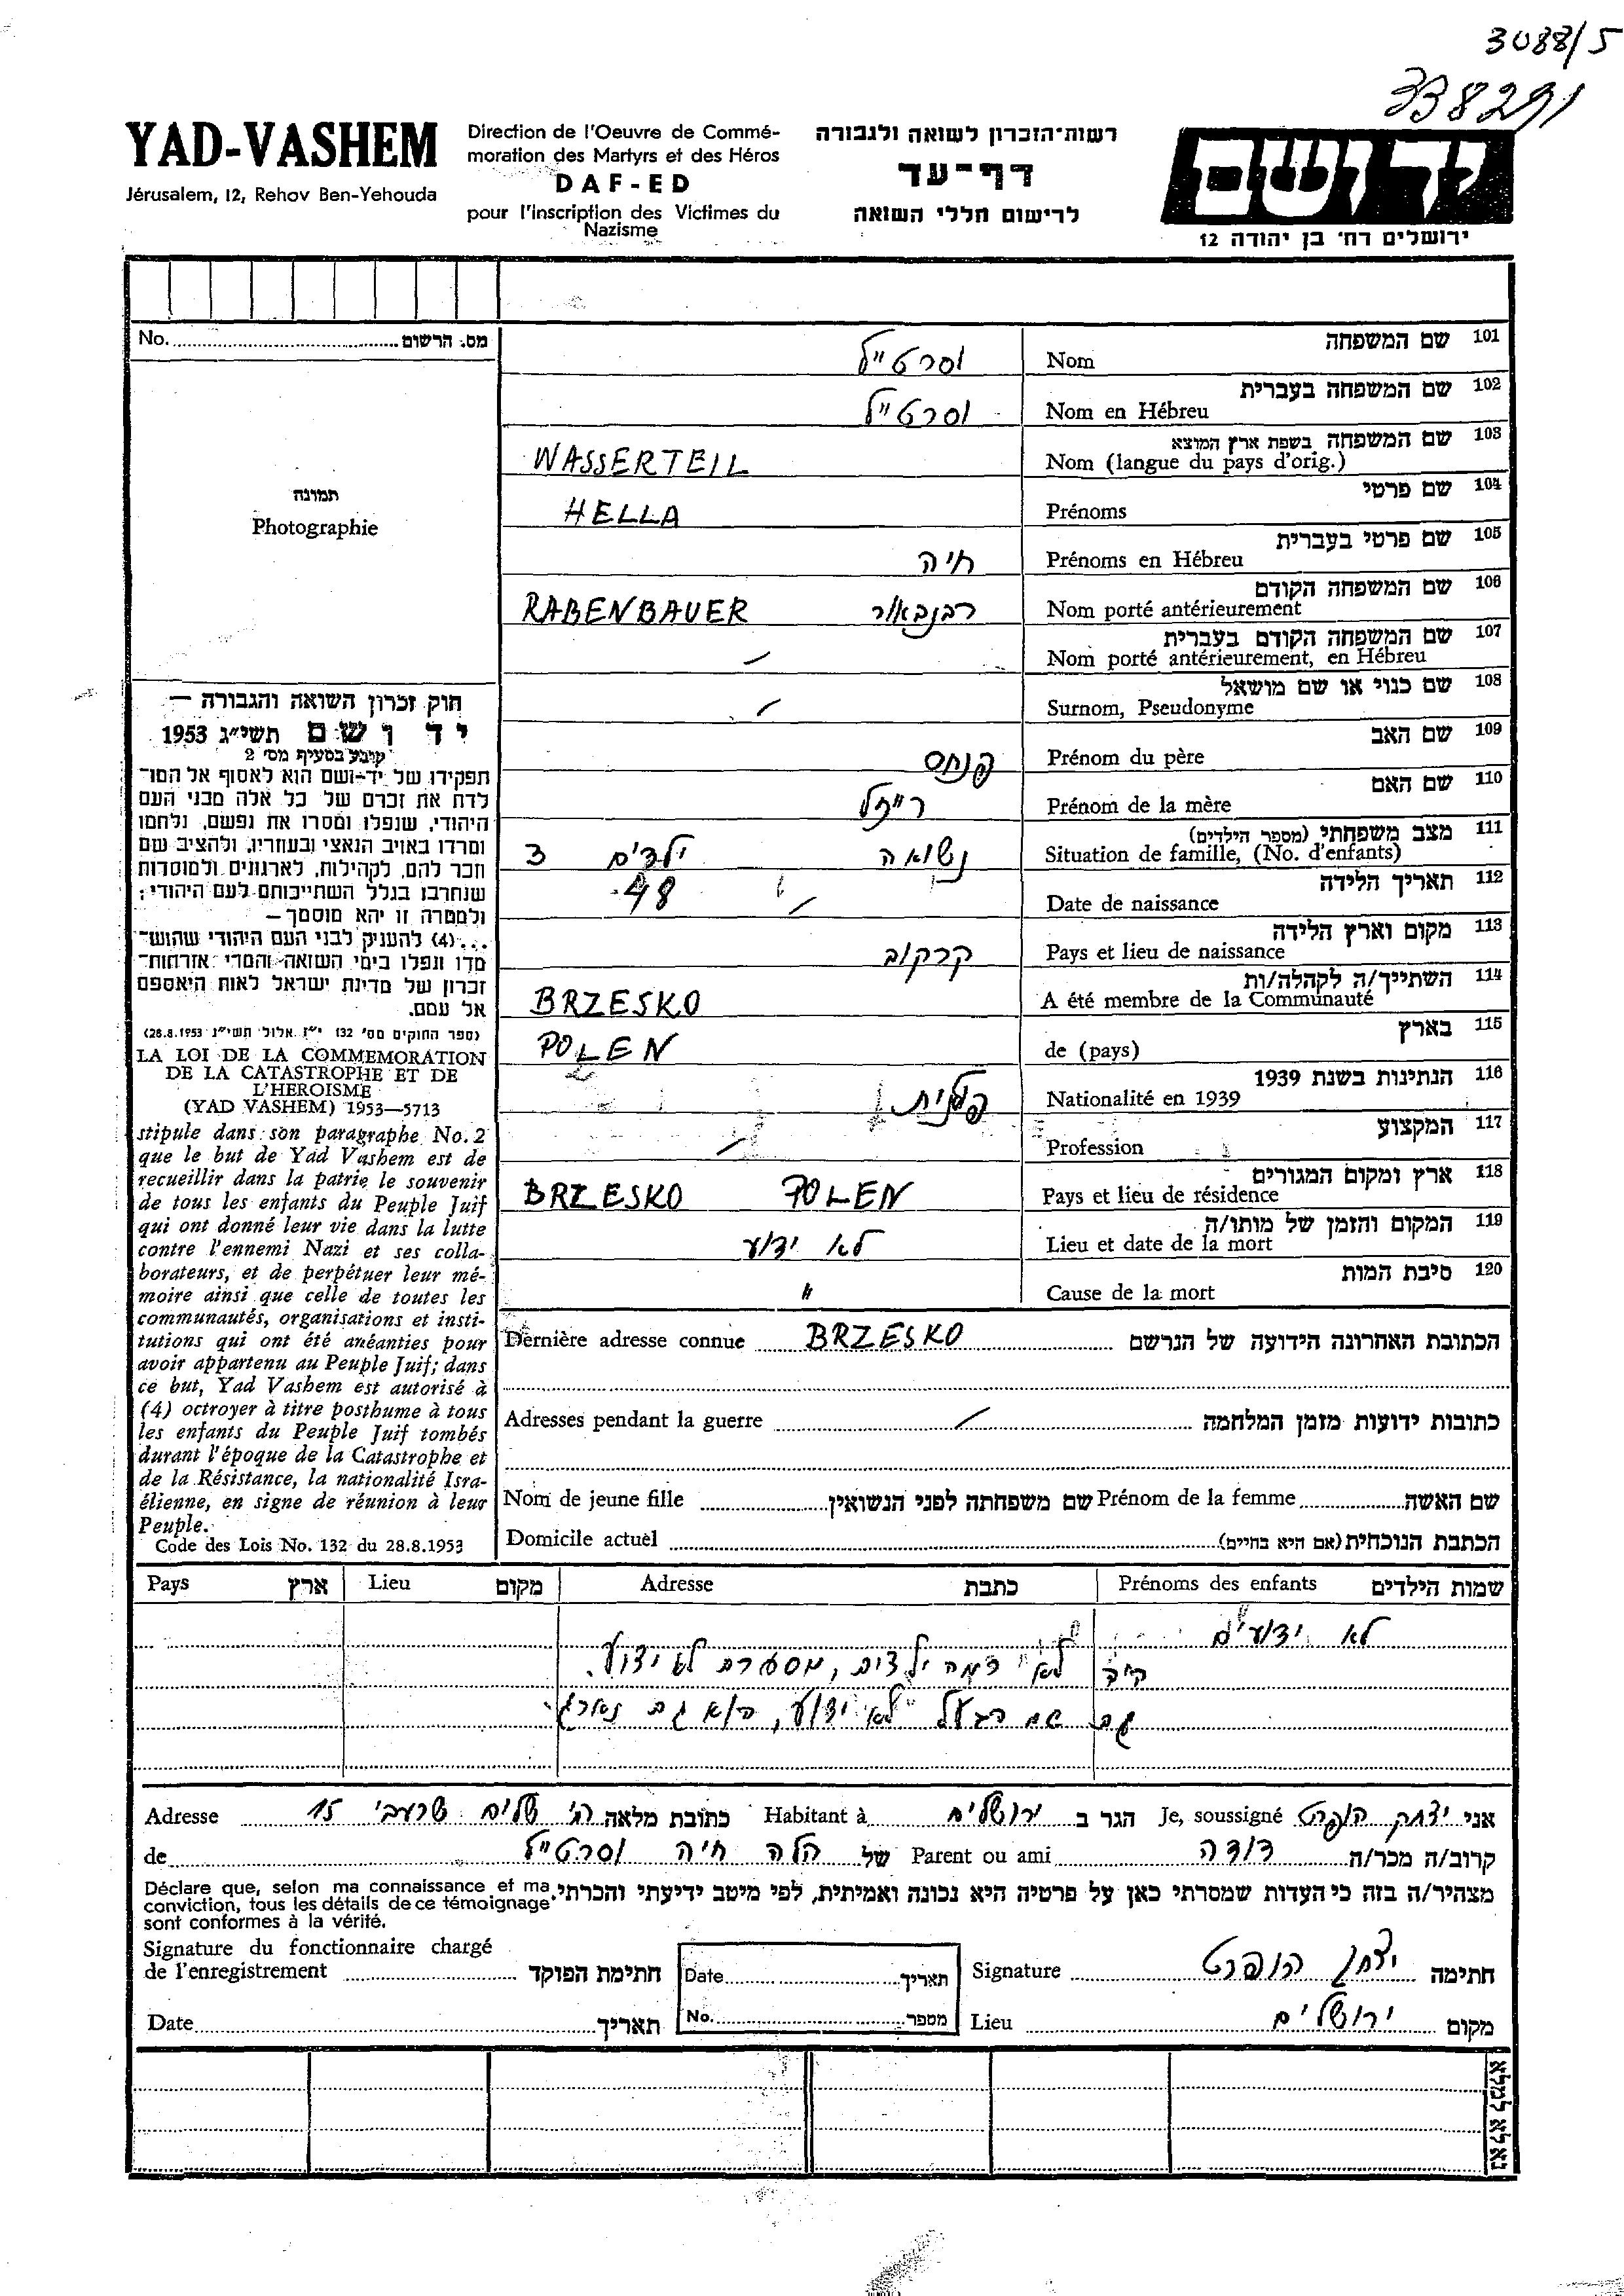 3088/5
338291
YAD-VASHEM
Jérusalem, 12, Rehov Ben-Yehouda
Direction de l'Oeuvre de Commé-
moration des Martyrs et des Héros
DAF-ED
pour l'inscription des Victimes du
Nazisme
רשות־הזכרון לשואה ולגבורה
דף־עד
לרישום חללי השואה
יד ושם
ירושלים רח' בן יהודה 12
No. מס. הרשום
תמונה
Photographie
101 שם המשפחה
Nom וסרטייל
102 שם המשפחה בעברית
Nom en Hébreu וסרטייל
103 שם המשפחה בשפת ארץ המוצא
Nom (langue du pays d'orig.) WASSERTEIL
104 שם פרטי
Prénoms HELLA
105 שם פרטי בעברית
Prénoms en Hébreu חיה
106 שם המשפחה הקודם
Nom porté antérieurement רבנבאור RABENBAUER
107 שם המשפחה הקודם בעברית
Nom porté antérieurement, en Hébreu /
108 שם כנוי או שם מושאל
Surnom, Pseudonyme /
109 שם האב
Prénom du père פנחס
110 שם האם
Prénom de la mère רייזל
111 מצב משפחתי (מספר הילדים)
Situation de famille, (No. d'enfants) נשואה ילדים 3
112 תאריך הלידה
Date de naissance / 48
113 מקום וארץ הלידה
Pays et lieu de naissance קרקוב
114 השתייך/ה לקהלה/ות
A été membre de la Communauté BRZESKO
115 בארץ
de (pays) POLEN
116 הנתינות בשנת 1939
Nationalité en 1939 פולנית
117 המקצוע
Profession /
118 ארץ ומקום המגורים
Pays et lieu de résidence BRZESKO POLEN
119 המקום והזמן של מותו/ה
Lieu et date de la mort לא ידוע
120 סיבת המות
Cause de la mort "
חוק זכרון השואה והגבורה —
יד ושם תשי"ג 1953
קובע בסעיף מס' 2
תפקידו של יד-ושם הוא לאסוף אל המו־
לדת את זכרם של כל אלה מבני העם
היהודי, שנפלו ומסרו את נפשם, נלחמו
ומרדו באויב הנאצי ובעוזריו, ולהציב שם
וזכר להם, לקהילות, לארגונים ולמוסדות
שנחרבו בגלל השתייכותם לעם היהודי;
ולמטרה זו יהא מוסמך—
...(4) להעניק לבני העם היהודי שהוש־
מדו ונפלו בימי השואה והמרי אזרחות־
זכרון של מדינת ישראל לאות היאספם
אל עמם.
(ספר החוקים מס' 132 י"ז אלול תשי"ג 28.8.1953)
LA LOI DE LA COMMEMORATION
DE LA CATASTROPHE ET DE
L'HEROISME
(YAD VASHEM) 1953—5713
stipule dans son paragraphe No. 2
que le but de Yad Vashem est de
recueillir dans la patrie le souvenir
de tous les enfants du Peuple Juif
qui ont donné leur vie dans la lutte
contre l'ennemi Nazi et ses colla-
borateurs, et de perpétuer leur mé-
moire ainsi que celle de toutes les
communautés, organisations et insti-
tutions qui ont été anéanties pour
avoir appartenu au Peuple Juif; dans
ce but, Yad Vashem est autorisé à
(4) octroyer à titre posthume à tous
les enfants du Peuple Juif tombés
durant l'époque de la Catastrophe et
de la Résistance, la nationalité Isra-
élienne, en signe de réunion à leur
Peuple.
Code des Lois No. 132 du 28.8.1953
Dernière adresse connue BRZESKO הכתובת האחרונה הידועה של הנרשם
Adresses pendant la guerre / כתובות ידועות מזמן המלחמה
Nom de jeune fille שם משפחתה לפני הנשואין Prénom de la femme שם האשה
Domicile actuel הכתבת הנוכחית (אם היא בחיים)
Pays ארץ Lieu מקום Adresse כתבת Prénoms des enfants שמות הילדים
לא ידועים
כמה ילדים, מספרם לא ידוע.
גם שם הבעל לא ידוע, הוא גם נהרג.
אני יצחק הופרט Je, soussigné הגר ב ירושלים Habitant à כתובת מלאה רח' שלום שרעבי 15 Adresse
קרוב/ה מכר/ה דודה Parent ou ami של הלה חיה וסרטייל de
מצהיר/ה בזה כי העדות שמסרתי כאן על פרטיה היא נכונה ואמיתית, לפי מיטב ידיעתי והכרתי.
Déclare que, selon ma connaissance et ma
conviction, tous les détails de ce témoignage
sont conformes à la vérité.
Signature du fonctionnaire chargé
de l'enregistrement חתימת הפוקד
Date תאריך
Signature יצחק הופרט חתימה
Date תאריך
No. מספר
Lieu ירושלים מקום
נא לא למלא